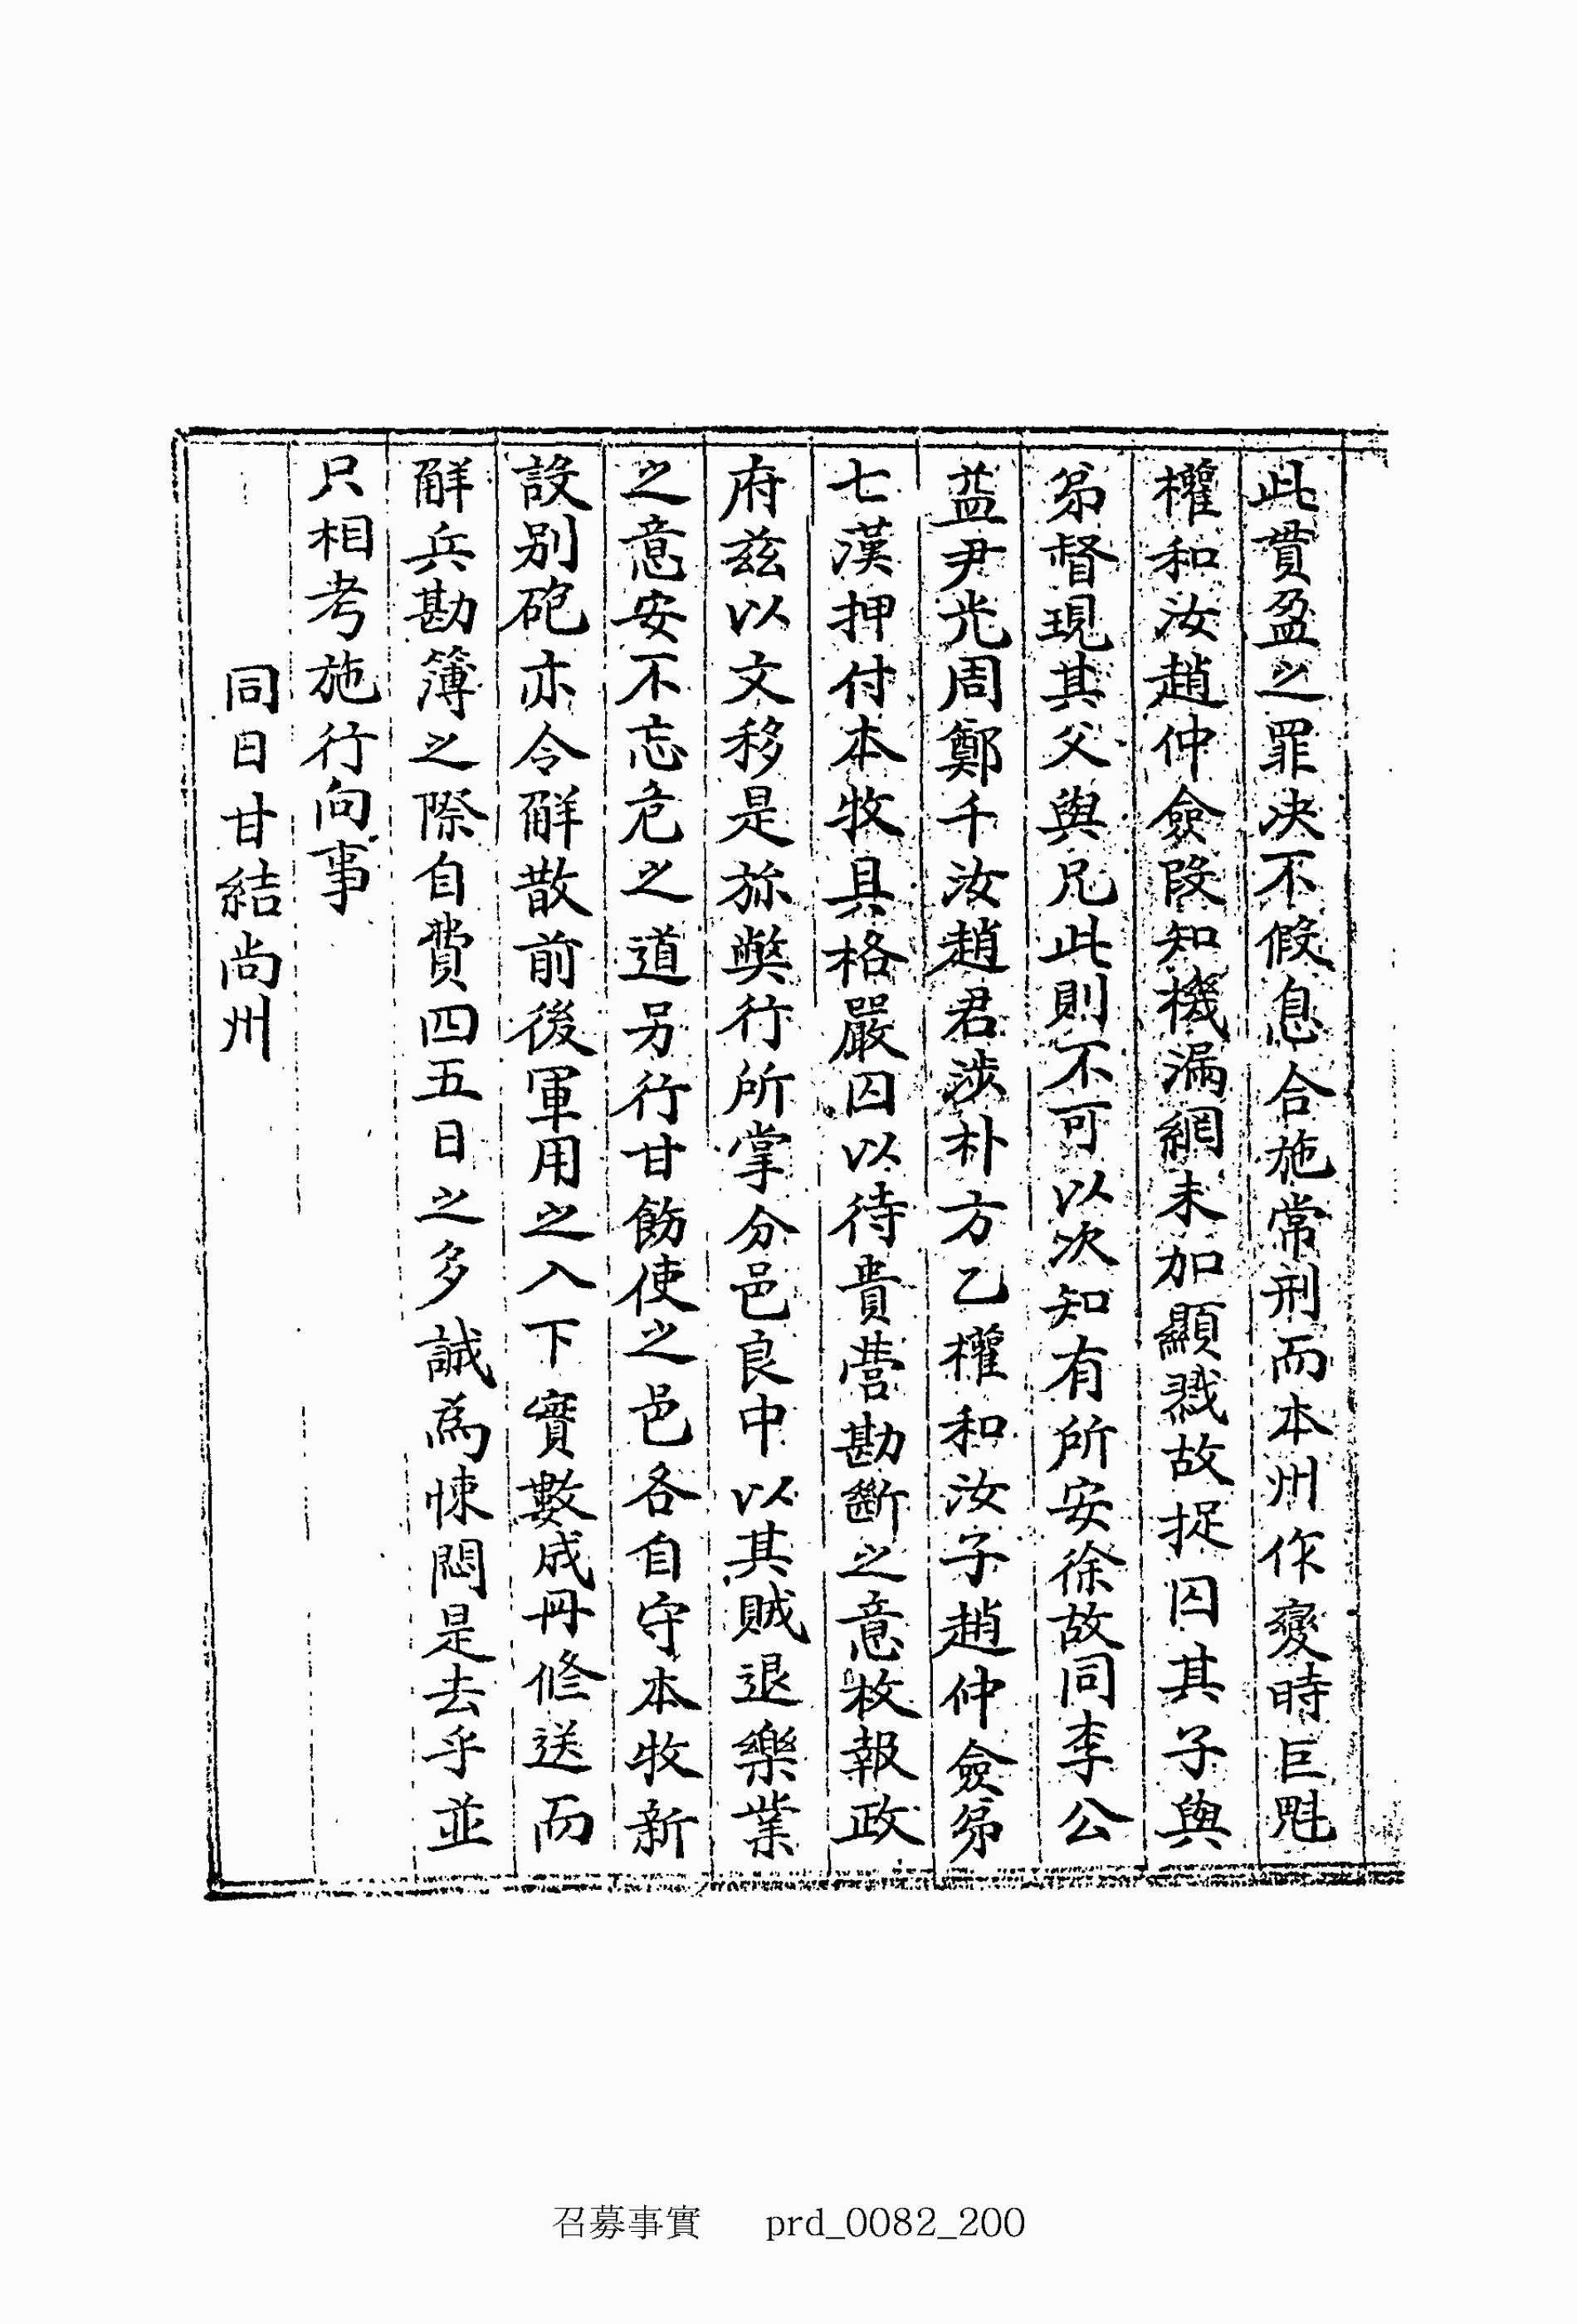 此貫盈之罪决不假息合施常刑而本州作變時巨魁
權和汝趙仲僉段知機漏網未加顯戮故捉囚其子與
弟督現其父與兄此則不可以次知有所安徐故同李公
益尹光周鄭千汝趙君涉朴方乙權和汝子趙仲僉弟
七漢押付本牧具格嚴囚以待貴營勘斷之意牧報政
府玆以文移是旀獘行所掌分邑良中以其賊退樂業
之意安不忘危之道另行甘飭使之邑各自守本牧新
設別砲亦令觧散前後軍用之入下實數成冊修送而
觧兵勘簿之際自費四五日之多誠爲悚悶是去乎並
只相考施行向事
同日甘結尚州
召募事實 prd_0082_200